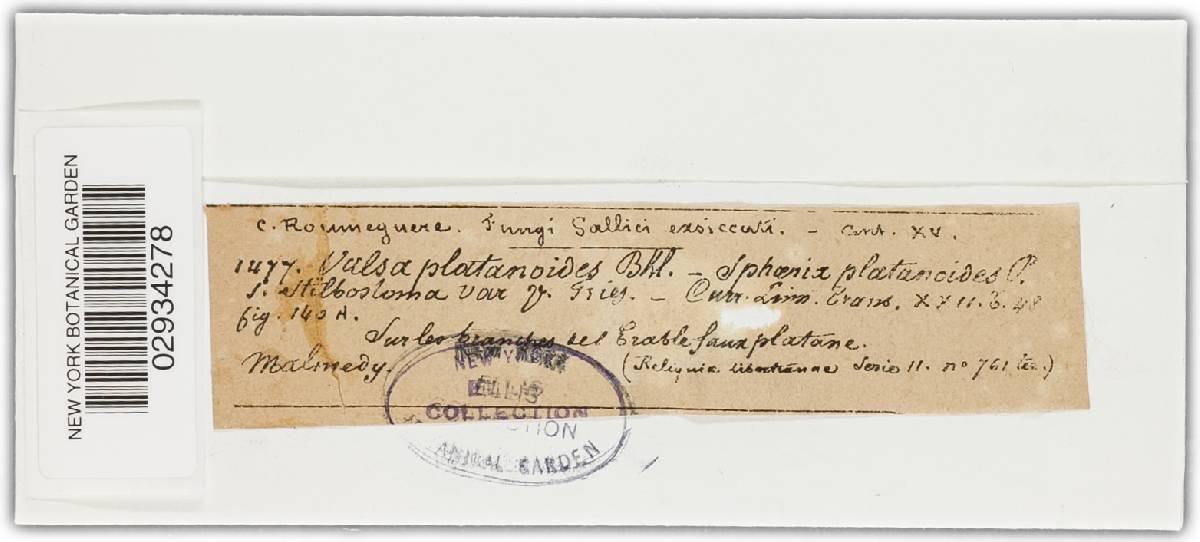 NEW YORK BOTANICAL GARDEN
02934278
C. Roumeguere. Fungi Gallici exsiccati. - Cent. XV.
1477. Valsa platanoides Bkl. - Sphæria platanoides P.
S. Stilbostoma var γ. Fries. - Curr. Linn. Trans. XXII. T. 48
fig. 140 A.
Sur les branches de l'Erable faux platane.
Malmedy. (Reliquiæ Libertianae Serie II. nº 761 ter.)
NEW YORK
ELLIS
COLLECTION
BOTANICAL GARDEN